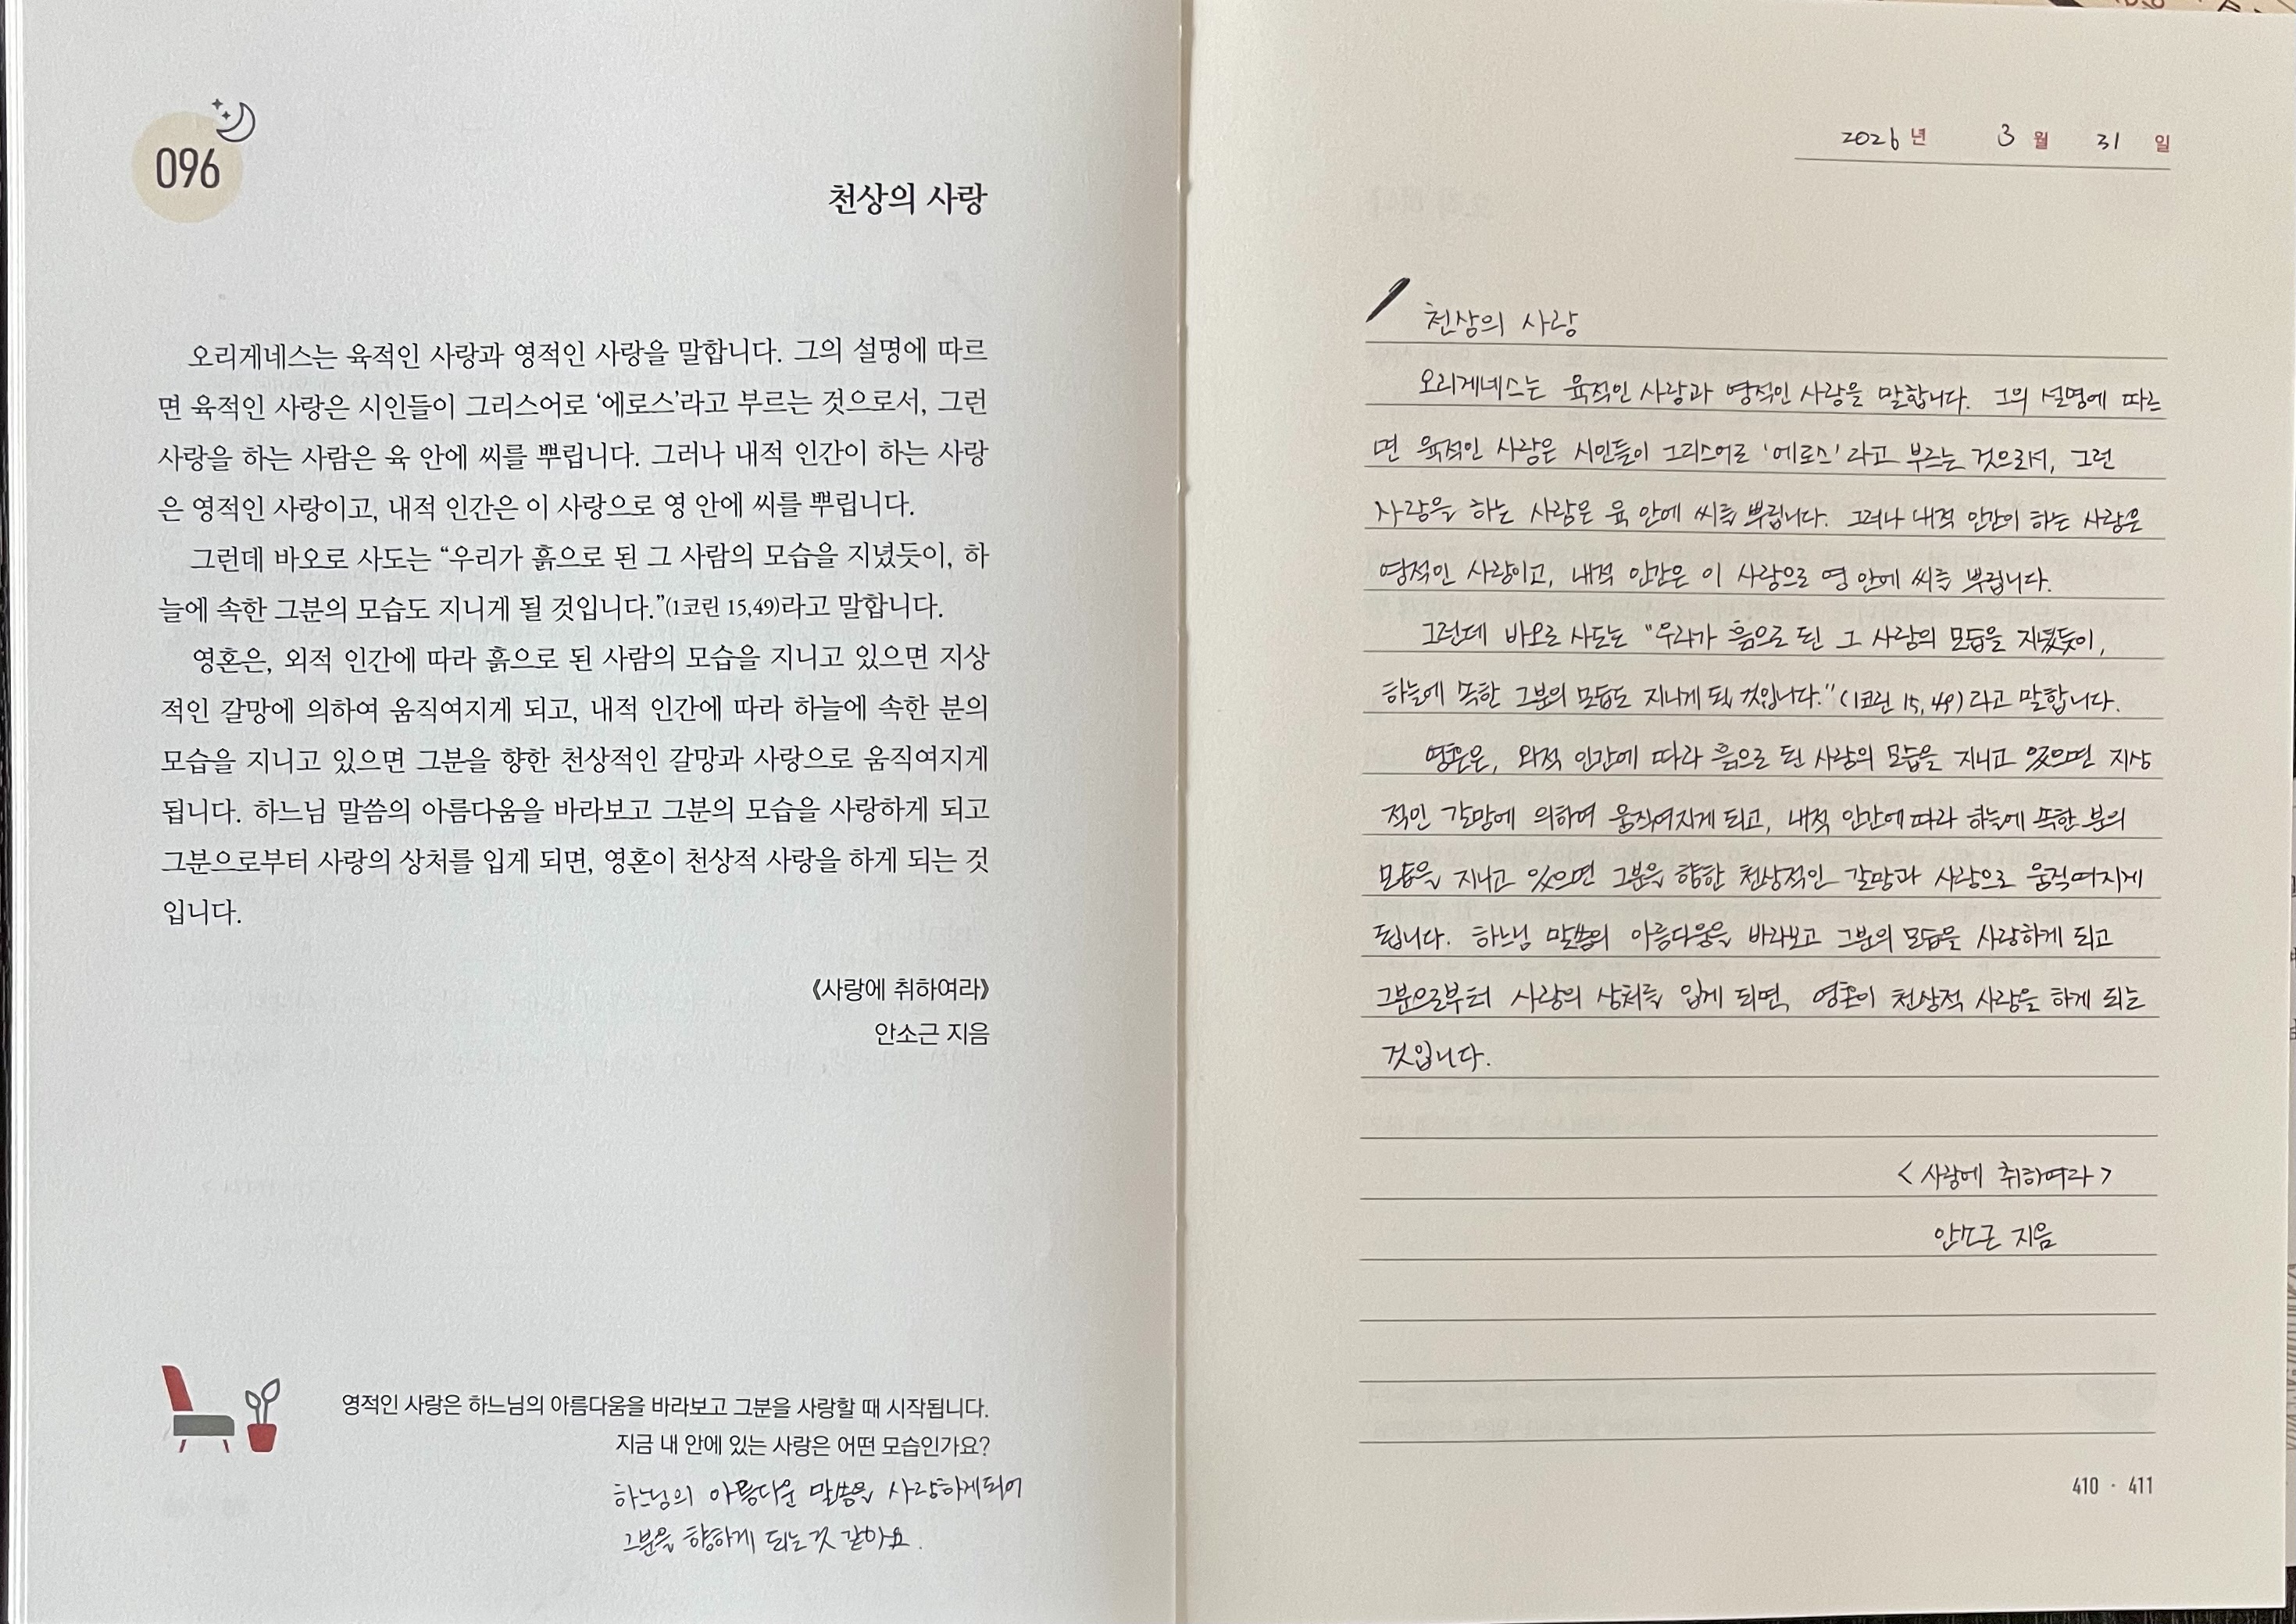 096
천상의 사랑
오리게네스는 육적인 사랑과 영적인 사랑을 말합니다. 그의 설명에 따르
면 육적인 사랑은 시인들이 그리스어로 ‘에로스’라고 부르는 것으로서, 그런
사랑을 하는 사람은 육 안에 씨를 뿌립니다. 그러나 내적 인간이 하는 사랑
은 영적인 사랑이고, 내적 인간은 이 사랑으로 영 안에 씨를 뿌립니다.
그런데 바오로 사도는 “우리가 흙으로 된 그 사람의 모습을 지녔듯이, 하
늘에 속한 그분의 모습도 지니게 될 것입니다.”(1코린 15,49)라고 말합니다.
영혼은, 외적 인간에 따라 흙으로 된 사람의 모습을 지니고 있으면 지상
적인 갈망에 의하여 움직여지게 되고, 내적 인간에 따라 하늘에 속한 분의
모습을 지니고 있으면 그분을 향한 천상적인 갈망과 사랑으로 움직여지게
됩니다. 하느님 말씀의 아름다움을 바라보고 그분의 모습을 사랑하게 되고
그분으로부터 사랑의 상처를 입게 되면, 영혼이 천상적 사랑을 하게 되는 것
입니다.
《사랑에 취하여라》
안소근 지음
영적인 사랑은 하느님의 아름다움을 바라보고 그분을 사랑할 때 시작됩니다.
지금 내 안에 있는 사랑은 어떤 모습인가요?
하느님의 아름다운 말씀을 사랑하게되어
그분을 향하게 되는것 같아요.
2026년 3월 31일
천상의 사랑
오리게네스는 육적인 사랑과 영적인 사랑을 말합니다. 그의 설명에 따르
면 육적인 사랑은 시인들이 그리스어로 '에로스'라고 부르는 것으로서, 그런
사랑을 하는 사람은 육 안에 씨를 뿌립니다. 그러나 내적 인간이 하는 사랑은
영적인 사랑이고, 내적 인간은 이 사랑으로 영 안에 씨를 뿌립니다.
그런데 바오로 사도는 "우리가 흙으로 된 그 사람의 모습을 지녔듯이,
하늘에 속한 그분의 모습도 지니게 될 것입니다."(1코린 15,49)라고 말합니다.
영혼은, 외적 인간에 따라 흙으로 된 사람의 모습을 지니고 있으면 지상
적인 갈망에 의하여 움직여지게 되고, 내적 인간에 따라 하늘에 속한 분의
모습을 지니고 있으면 그분을 향한 천상적인 갈망과 사랑으로 움직여지게
됩니다. 하느님 말씀의 아름다움을 바라보고 그분의 모습을 사랑하게 되고
그분으로부터 사랑의 상처를 입게 되면, 영혼이 천상적 사랑을 하게 되는
것입니다.
<사랑에 취하여라>
안소근 지음
410 · 411